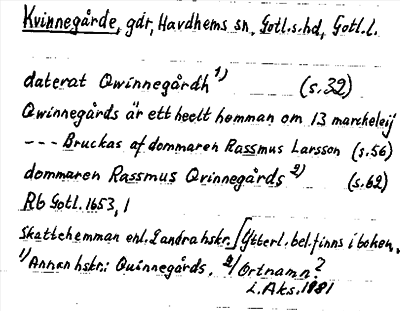 Kvinnegårde, gdr, Havdhems sn, Gotl.s.hd, Gotl.l.
daterat Qwinnegårdh 1) (s.32)
Qwinnegårds är ett heelt hemman om 13 marcheleij
--- Bruckas af dommaren Rassmus Larsson (s.56)
dommaren Rassmus Qvinnegårds 2) (s.62)
Rb Gotl. 1653, 1
Skattehemman enl. 2 andra hskr. / Ytterl. bel. finns i boken.
1) Annan hskr.: Quinnegårds. 2) Ortnamn?
L.Aks. 1981